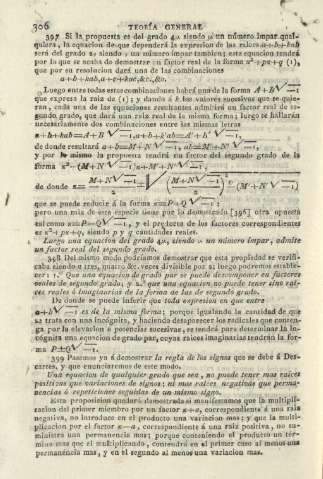 306 TEORÍA GENERAL
397 Si la propuesta es del grado 4μ siendo μ un número impar qual-
quiera, la equacion de que dependerá la expresion de las raíces a+b+hab
será del grado 2μ siendo μ un número impar tambien; esta equacion tendrá
por lo que se acaba de demostrar un factor real de la forma z²+pz+q (1),
que por su resolucion dará una de las combinaciones
a+b+hab, a+c+hac, &c., &c.
Luego entre todas estas combinaciones habrá una de la forma A+B√−1,
que exprese la raiz de (1); y dando á h los valores sucesivos que se quie-
ran, cada una de las equaciones resultantes admitirá un factor real de se-
gundo grado, que dará una raiz real de la misma forma; luego se hallarán
necesariamente dos combinaciones entre las mismas letras
a+b+hab=A+B√−1, a+b+h'ab=A'+b'√−1,
de donde resultará a+b=M+N√−1, ab=M'+N'√−1,
y por lo mismo la propuesta tendrá un factor del segundo grado de la
forma x²−(M+N√−1)x+M'+N'√−1,
de donde
que se puede reducir á la forma x=P+Q√−1;
pero una raiz de esta especie tiene por lo demostrado [396] otra opuesta
tal como x=P−Q√−1, y el producto de los factores correspondientes
es x²+px+q, siendo p y q cantidades reales.
Luego una equacion del grado 4μ, siendo μ un número impar, admite
un factor real del segundo grado.
398 Del mismo modo podriamos demostrar que esta propiedad se verifi-
caba siendo n tres, quatro &c. veces divisible por 2; luego podremos estable-
cer: 1.° Que una equacion de grado par se puede descomponer en factores
reales de segundo grado; y 2.° que una equacion no puede tener sino raí-
ces reales ó imaginarias de la forma de las de segundo grado.
De donde se puede inferir que toda expresion en que entre
a+b√−1 es de la misma forma; porque igualando la cantidad de que
se trata con una incógnita, y haciendo desaparecer los radicales que conten-
ga por la elevacion á potencias sucesivas, se tendrá para determinar la in-
cógnita una equacion de grado par, cuyas raices imaginarias tendrán la for-
ma P+Q√−1.
399 Pasemos ya á demostrar la regla de los signos que se debe á Des-
cartes, y que enunciaremos de este modo.
Una equacion de qualquier grado que sea, no puede tener mas raices
positivas que variaciones de signos; ni mas raices negativas que perma-
nencias ó repeticiones seguidas de un mismo signo.
Esta proposicion quedará demostrada si manifestamos que la multipli-
cacion del primer miembro por un factor x+a, correspondiente á una raiz
negativa, no introduce en el producto una variacion mas; y que la multi-
plicacion por el factor x−a, correspondiente á una raiz positiva, no su-
ministra una permanencia mas; porque conteniendo el producto un tér-
mino mas que el multiplicando, contendrá en el primer caso al menos una
permanencia mas, y en el segundo al menos una variacion mas.